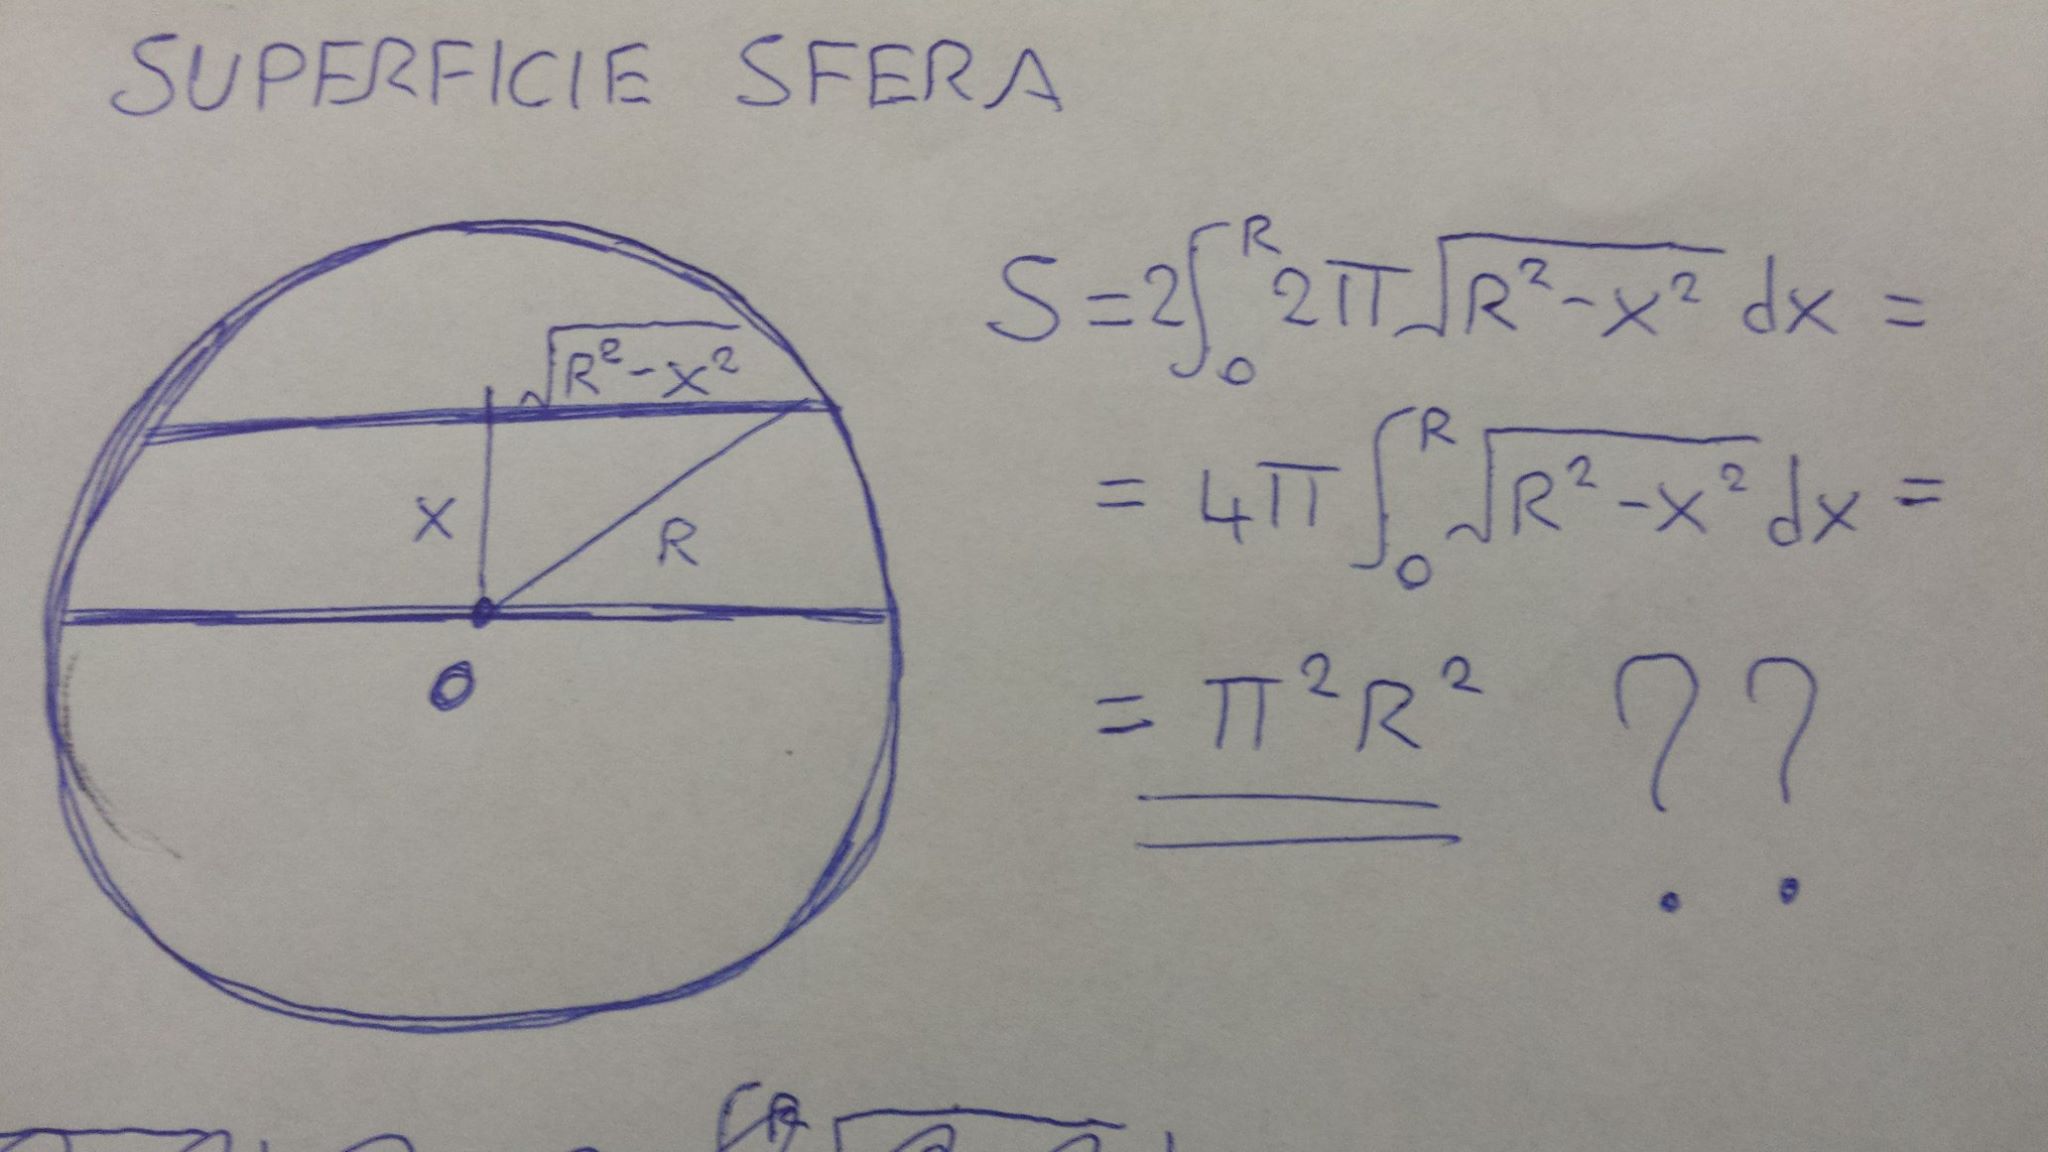 SUPERFICIE SFERA
√(R²-x²)
x
R
O
S = 2∫₀ᴿ 2π√(R²-x²) dx =
= 4π ∫₀ᴿ √(R²-x²) dx =
= π²R² ??